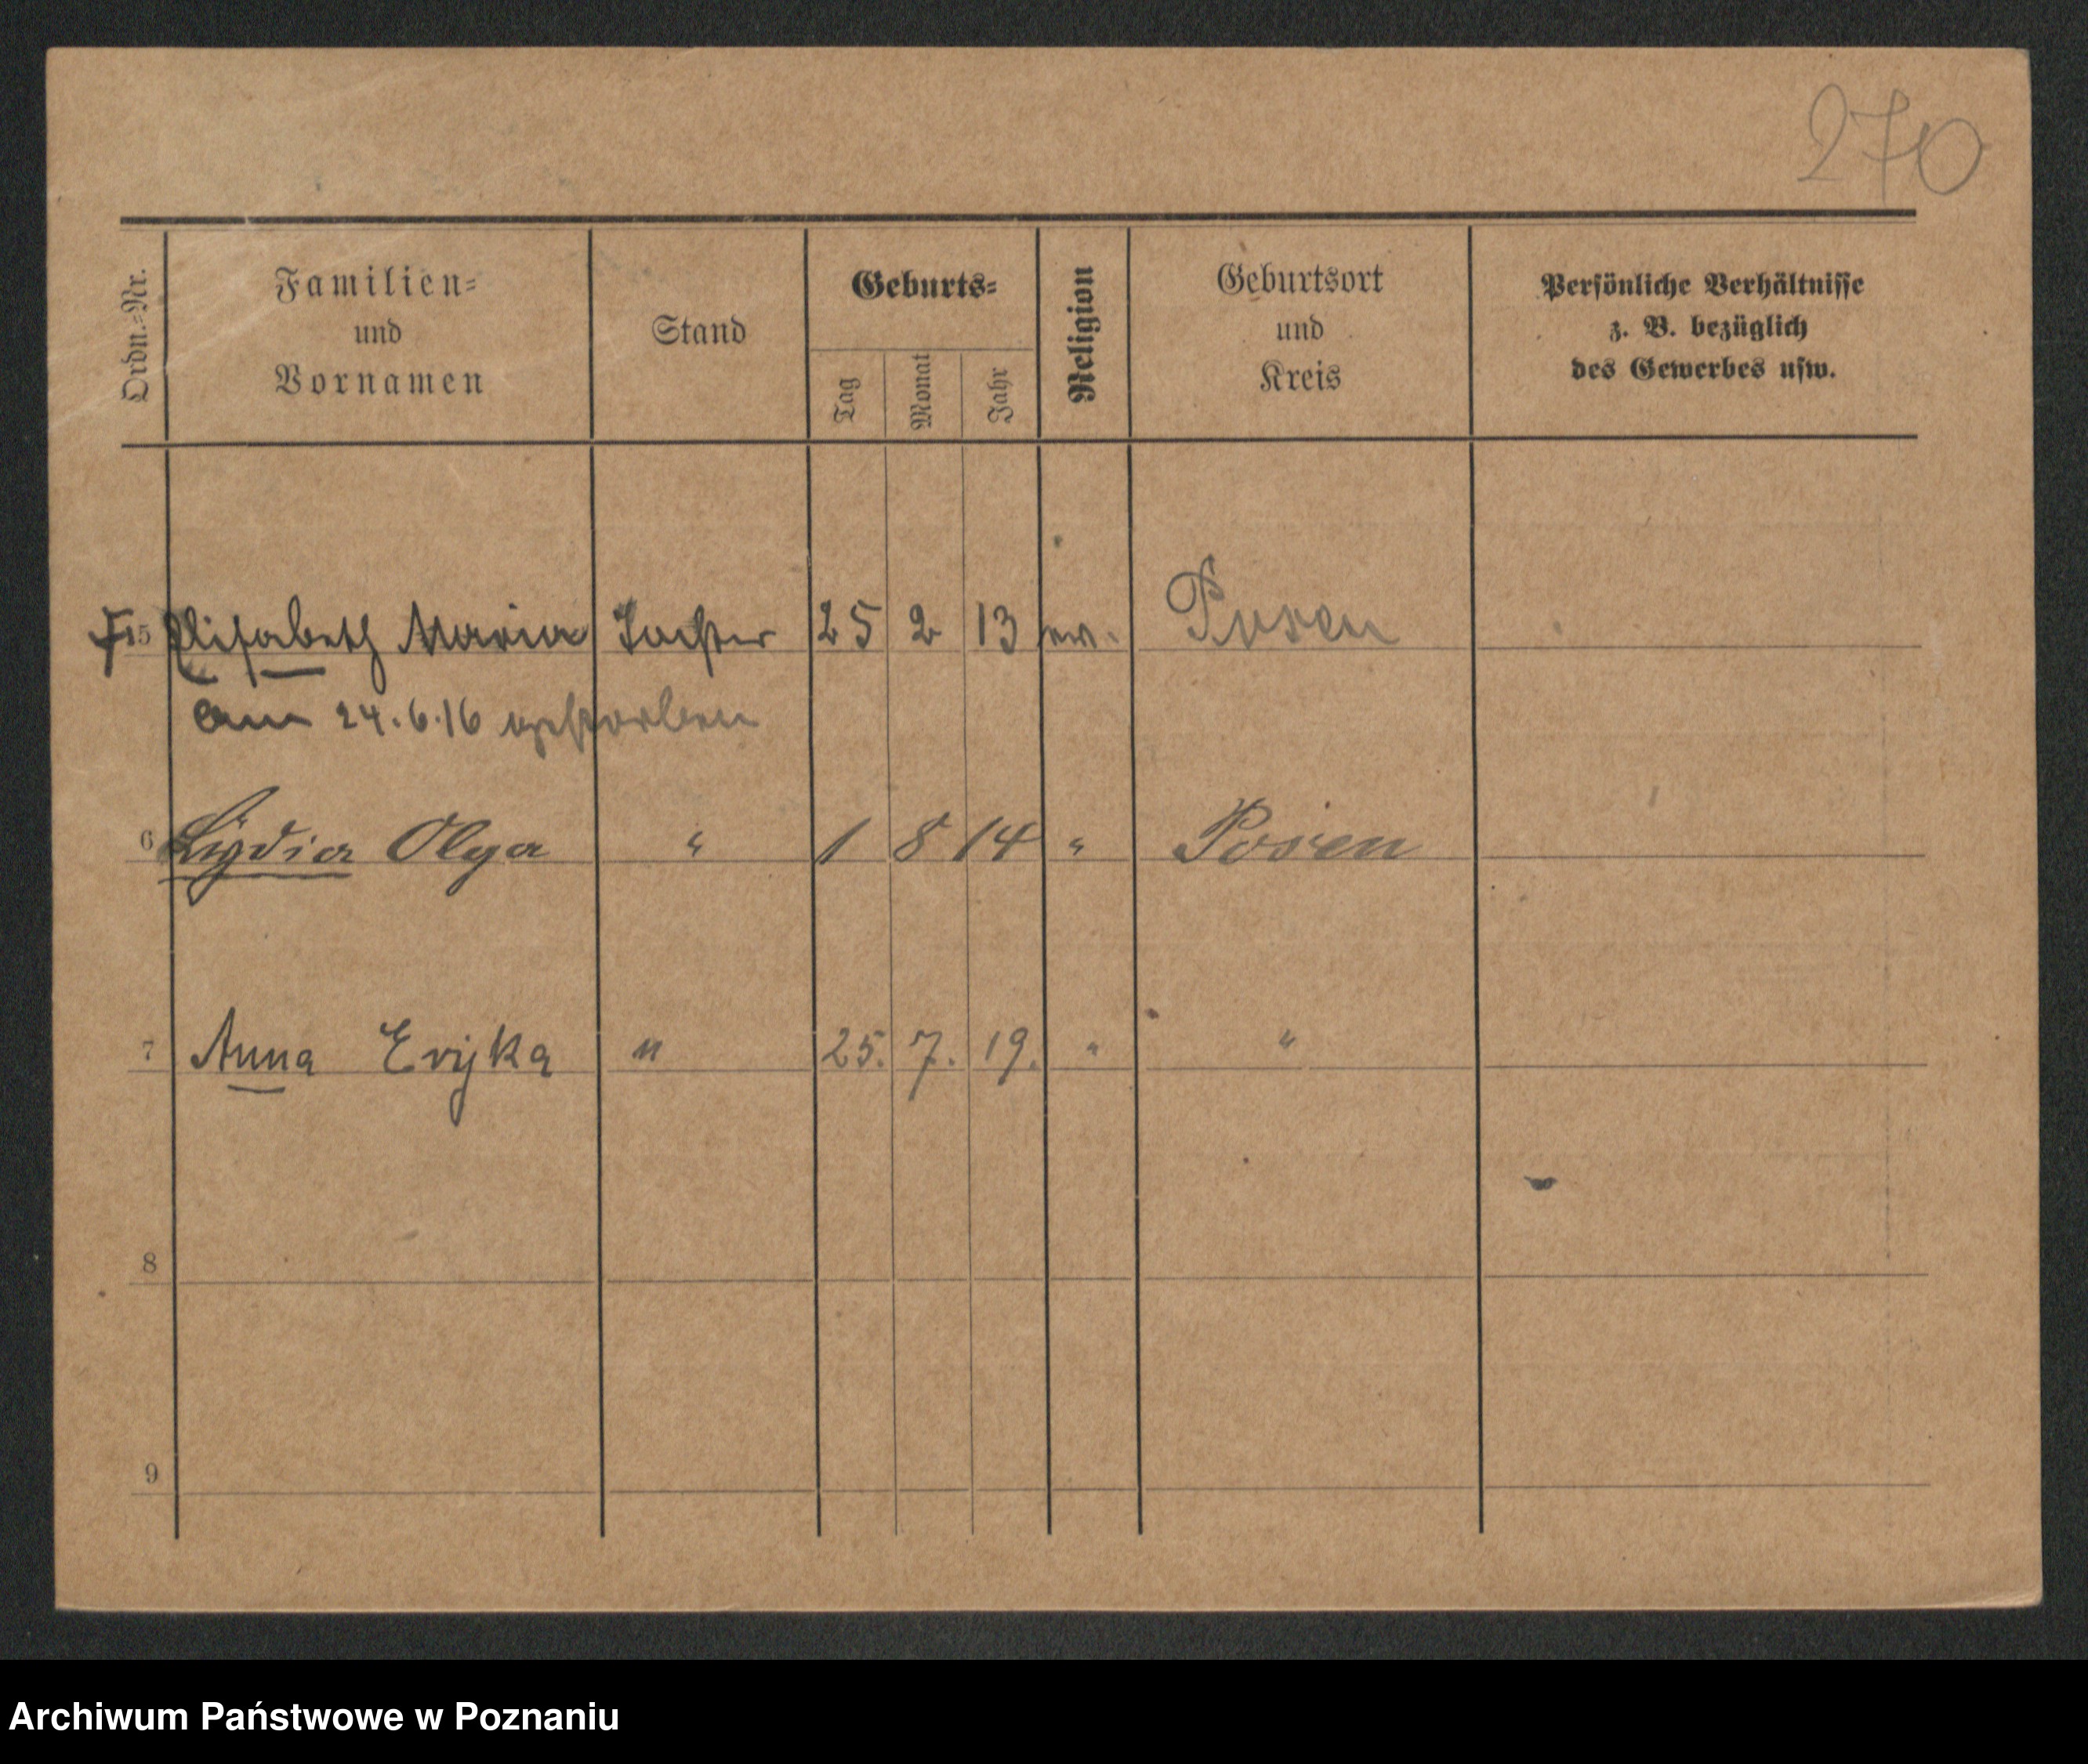 270
Ordn.-Nr.
Familien-
und
Vornamen
Stand
Geburts-
Tag
Monat
Jahr
Religion
Geburtsort
und
Kreis
Persönliche Verhältnisse
z. B. bezüglich
des Gewerbes usw.
5 Elisabeth Maria Tochter 25 2 13 ev. Posen
am 24.6.16 gestorben
6 Lydia Olga " 1 8 14 " Posen
7 Anna " 25. 7. 19. " "
8
9
Archiwum Państwowe w Poznaniu